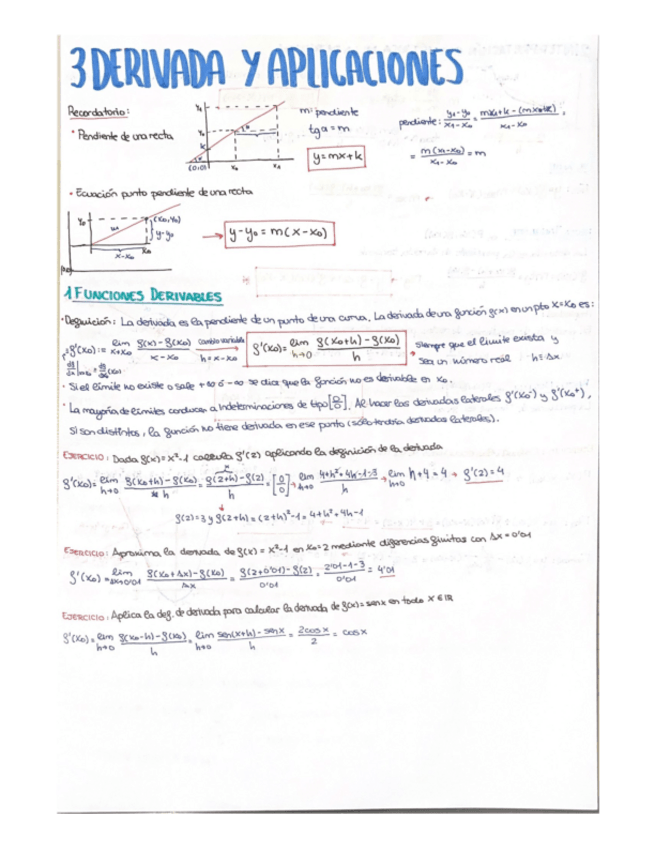 3 DERIVADA Y APLICACIONES
Recordatorio:
· Pendiente de una recta
y₁
y₀
k
(0,0)
x₀
x₁
m: pendiente
tg α = m
y = mx + k
pendiente: y₁ - y₀ / x₁ - x₀ = mx₁ + k - (mx₀ + k) / x₁ - x₀ =
= m(x₁ - x₀) / x₁ - x₀ = m
· Ecuación punto pendiente de una recta
y₀
(x₀, y₀)
y - y₀
x₀
x - x₀
→ y - y₀ = m(x - x₀)
1 FUNCIONES DERIVABLES
· Definición: La derivada es la pendiente de un punto de una curva. La derivada de una función f(x) en un pto x = x₀ es:
f'(x₀) := lim x→x₀ f(x) - f(x₀) / x - x₀ cambio variable h = x - x₀ f'(x₀) = lim h→0 f(x₀ + h) - f(x₀) / h siempre que el límite exista y
sea un número real · h = Δx
· Si el límite no existe o sale +∞ ó -∞ se dice que la función no es derivable en x₀.
· La mayoría de límites conducen a indeterminaciones de tipo [0/0]. Al hacer las derivadas laterales f'(x₀⁻) y f'(x₀⁺),
si son distintos, la función no tiene derivada en ese punto (sólo tendría derivadas laterales).
EJERCICIO: Dada f(x) = x² - 1 calcula f'(2) aplicando la definición de la derivada
f'(x₀) = lim h→0 f(x₀ + h) - f(x₀) / h = f(2 + h) - f(2) / h = [0/0] → lim h→0 4 + h² + 4h - 1 - 3 / h → lim h→0 h + 4 = 4 → f'(2) = 4
f(2) = 3 y f(2 + h) = (2 + h)² - 1 = 4 + h² + 4h - 1
EJERCICIO: Aproxima la derivada de f(x) = x² - 1 en x₀ = 2 mediante diferencias finitas con Δx = 0'01
f'(x₀) = lim Δx→0'01 f(x₀ + Δx) - f(x₀) / Δx = f(2 + 0'01) - f(2) / 0'01 = 2'01 - 1 - 3 / 0'01 = 4'01
EJERCICIO: Aplica la def. de derivada para calcular la derivada de f(x) = senx en todo x ∈ ℝ
f'(x₀) = lim h→0 f(x₀ - h) - f(x₀) / h = lim h→0 sen(x + h) - senx / h = 2cosx / 2 = cosx